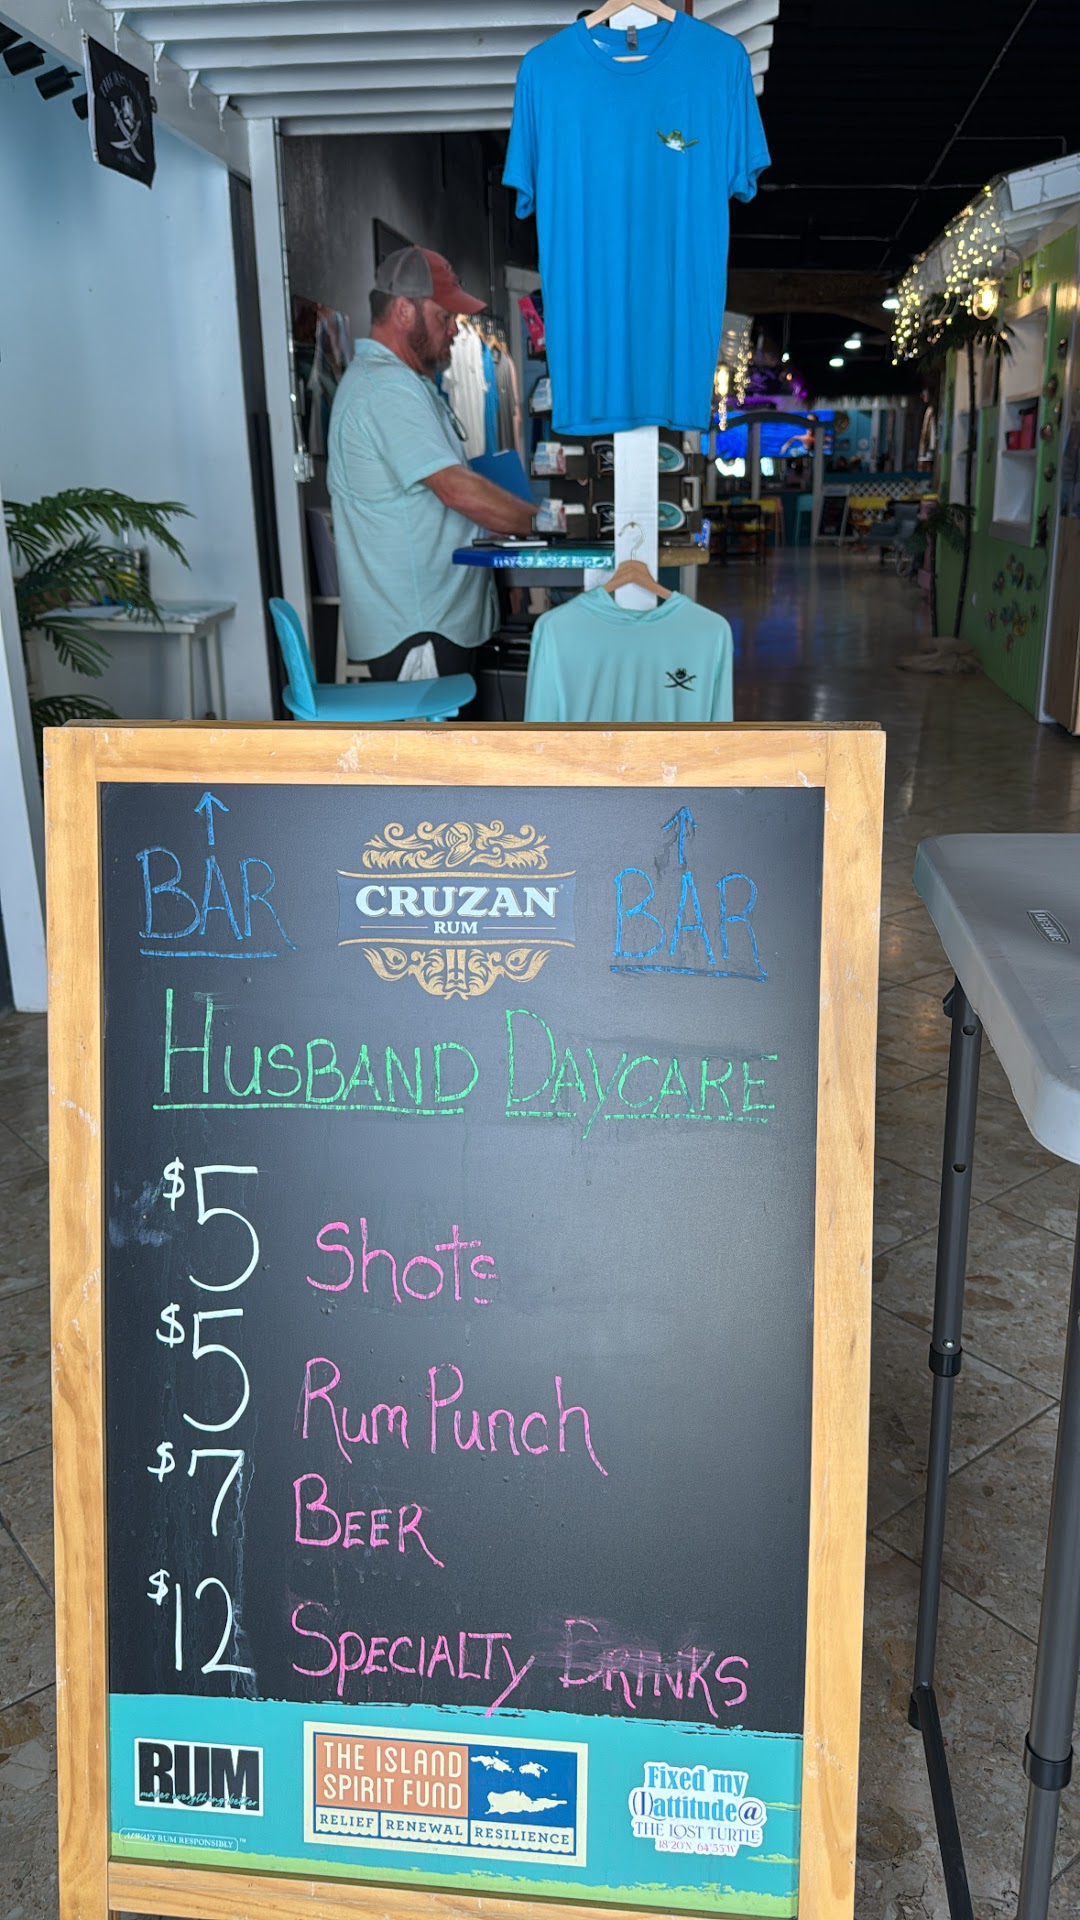 ↑ ↑
BAR CRUZAN BAR
RUM
HUSBAND DAYCARE
$5 Shots
$5 Rum Punch
$7 BEER
$12 SPECIALTY DRINKS
RUM
makes everything better
ALWAYS RUM RESPONSIBLY ™
THE ISLAND
SPIRIT FUND
RELIEF RENEWAL RESILIENCE
Fixed my
(l)attitude@
THE LOST TURTLE
18°20'N, 64°55'W
LIFETIME